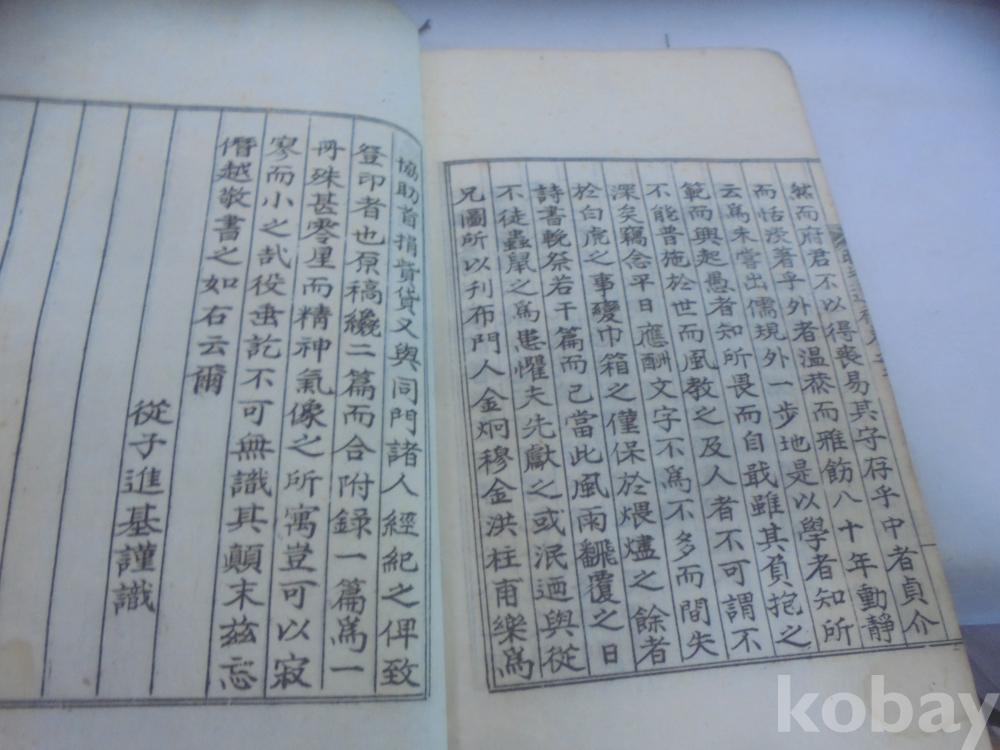 然而府君不以得喪易其守存乎中者貞介
而恬淡著乎外者溫恭而雅飭八十年動靜
云爲未嘗出儒現外一步地是以學者知所
範而興起愚者知所畏而自戢雖其負抱之
不能普施於世而風教之及人者不可謂不
深矣竊念平日應酬文字不爲不多而間失
於白虎之事變巾箱之僅保於煨燼之餘者
詩書輓祭若干篇而已當此風雨飜覆之日
不徒蟲鼠之爲患懼夫先獻之或泯迺與從
兄圖所以刊布門人金炯穆金洪柱甫樂爲
協助首捐貲貨又與同門諸人經紀之俾致
登印者也原稿纔二篇而合附錄一篇爲一
冊殊甚零星而精神氣像之所寓豈可以寂
寥而小之哉役垂訖不可無識其顚末玆忘
僭越敬書之如右云爾
從子進基謹識
kobay